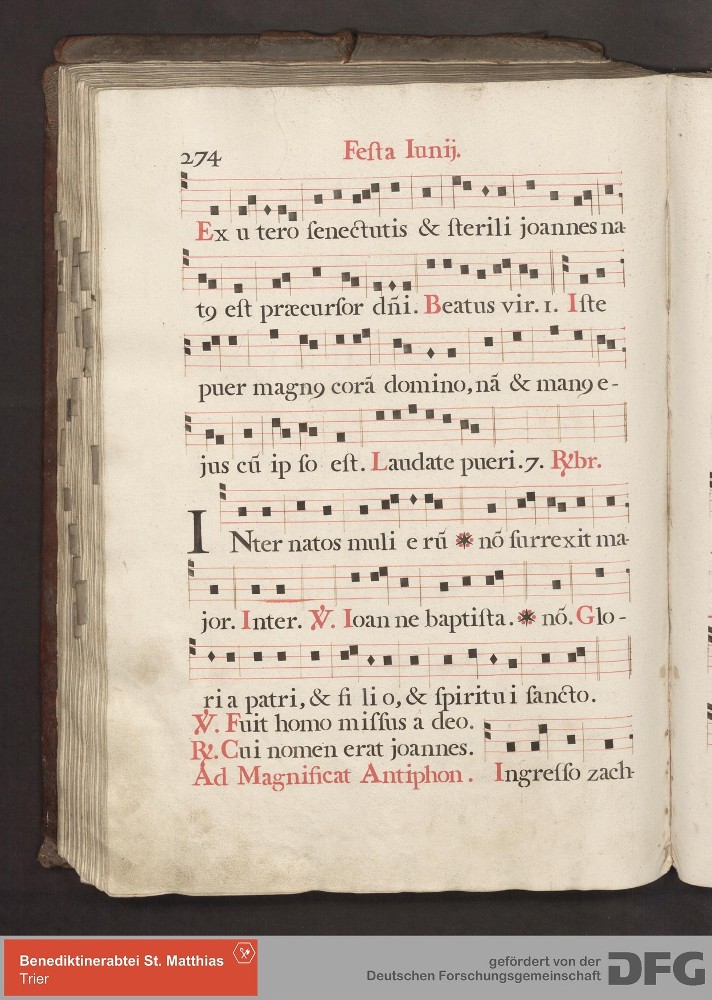 274 Festa Iunij.
Ex u tero senectutis & sterili joannes na-
t9 est præcursor dñi. Beatus vir. 1. Iste
puer magn9 corã domino, nã & man9 e-
jus cũ ip so est. Laudate pueri. 7. ℟br.
INter natos muli e rũ ✷ nõ surrexit ma-
jor. Inter. ℣. Ioan ne baptista. ✷ nõ. Glo-
ri a patri, & fi li o, & spiritu i sancto.
℣. Fuit homo missus a deo.
℟. Cui nomen erat joannes.
Ad Magnificat Antiphon. Ingresso zach-
Benediktinerabtei St. Matthias
Trier
gefördert von der
Deutschen Forschungsgemeinschaft
DFG